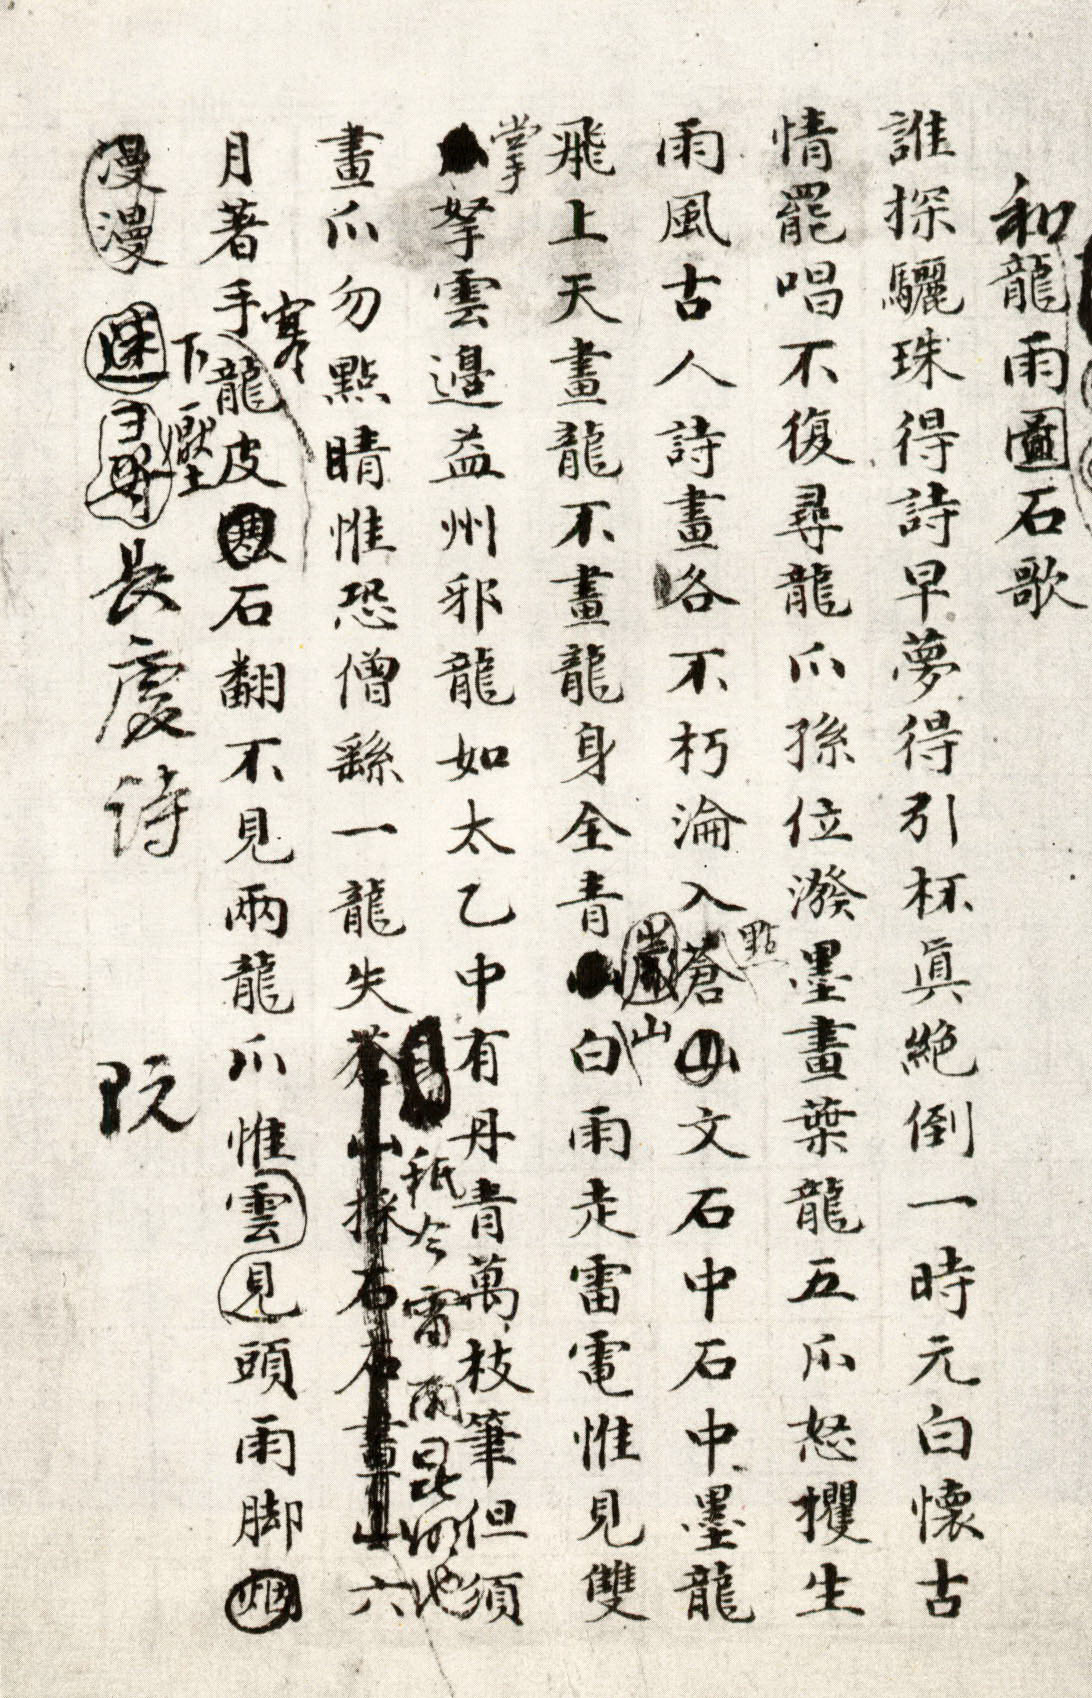 和龍雨圖石歌
誰探驪珠得詩早夢得引杯真絕倒一時元白懷古
情罷唱不復尋龍爪孫位潑墨畫葉龍五爪怒攫生
雨風古人詩畫各不朽淪入蒼山文石中石中墨龍
點
飛上天畫龍不畫龍身全青白雨走雷電惟見雙
嵐山
拏雲邊益州邪龍如太乙中有丹青萬枝筆但須
掌
畫爪勿點睛惟恐僧繇一龍失蒼山採石石畫山六
秖今雷雨昆明池
月著手龍皮石翻不見兩龍爪惟雲見頭雨脚烟
寒
漫漫速尋長慶詩 阮
下壓